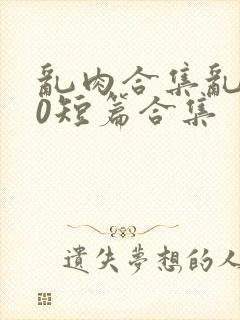 亂肉合集亂
0短篇合集
遺失夢想的人